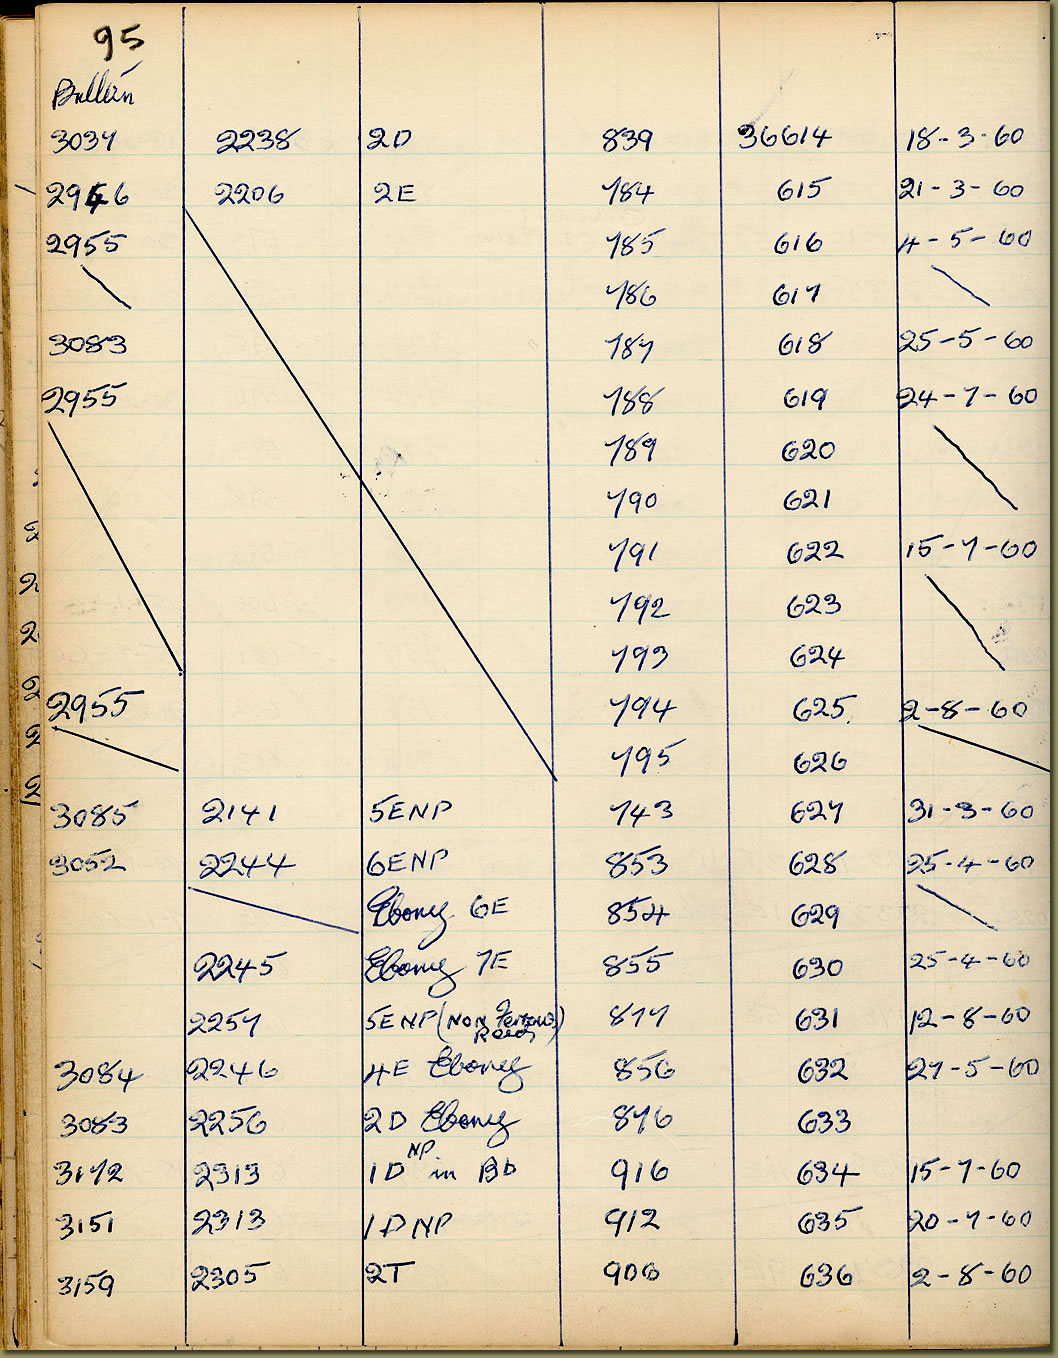 95
3037 2238 2D 839 36614 18-3-60
2946 2206 2E 784 615 21-3-60
2955 785 616 4-5-60
786 617
3083 787 618 25-5-60
2955 788 619 24-7-60
789 620
790 621
791 622 15-7-60
792 623
793 624
2955 794 625 2-8-60
795 626
3085 2141 5ENP 743 627 31-3-60
3052 2244 6ENP 853 628 25-4-60
Ebony 6E 854 629
2245 Ebony 7E 855 630 25-4-60
2257 5ENP (Non Ferrous Reeds) 877 631 12-8-60
3084 2246 4E Ebony 856 632 27-5-60
3083 2256 2D Ebony 876 633
3172 2313 1D NP in BD 916 634 15-7-60
3151 2313 1D NP 912 635 20-7-60
3159 2305 2T 900 636 2-8-60